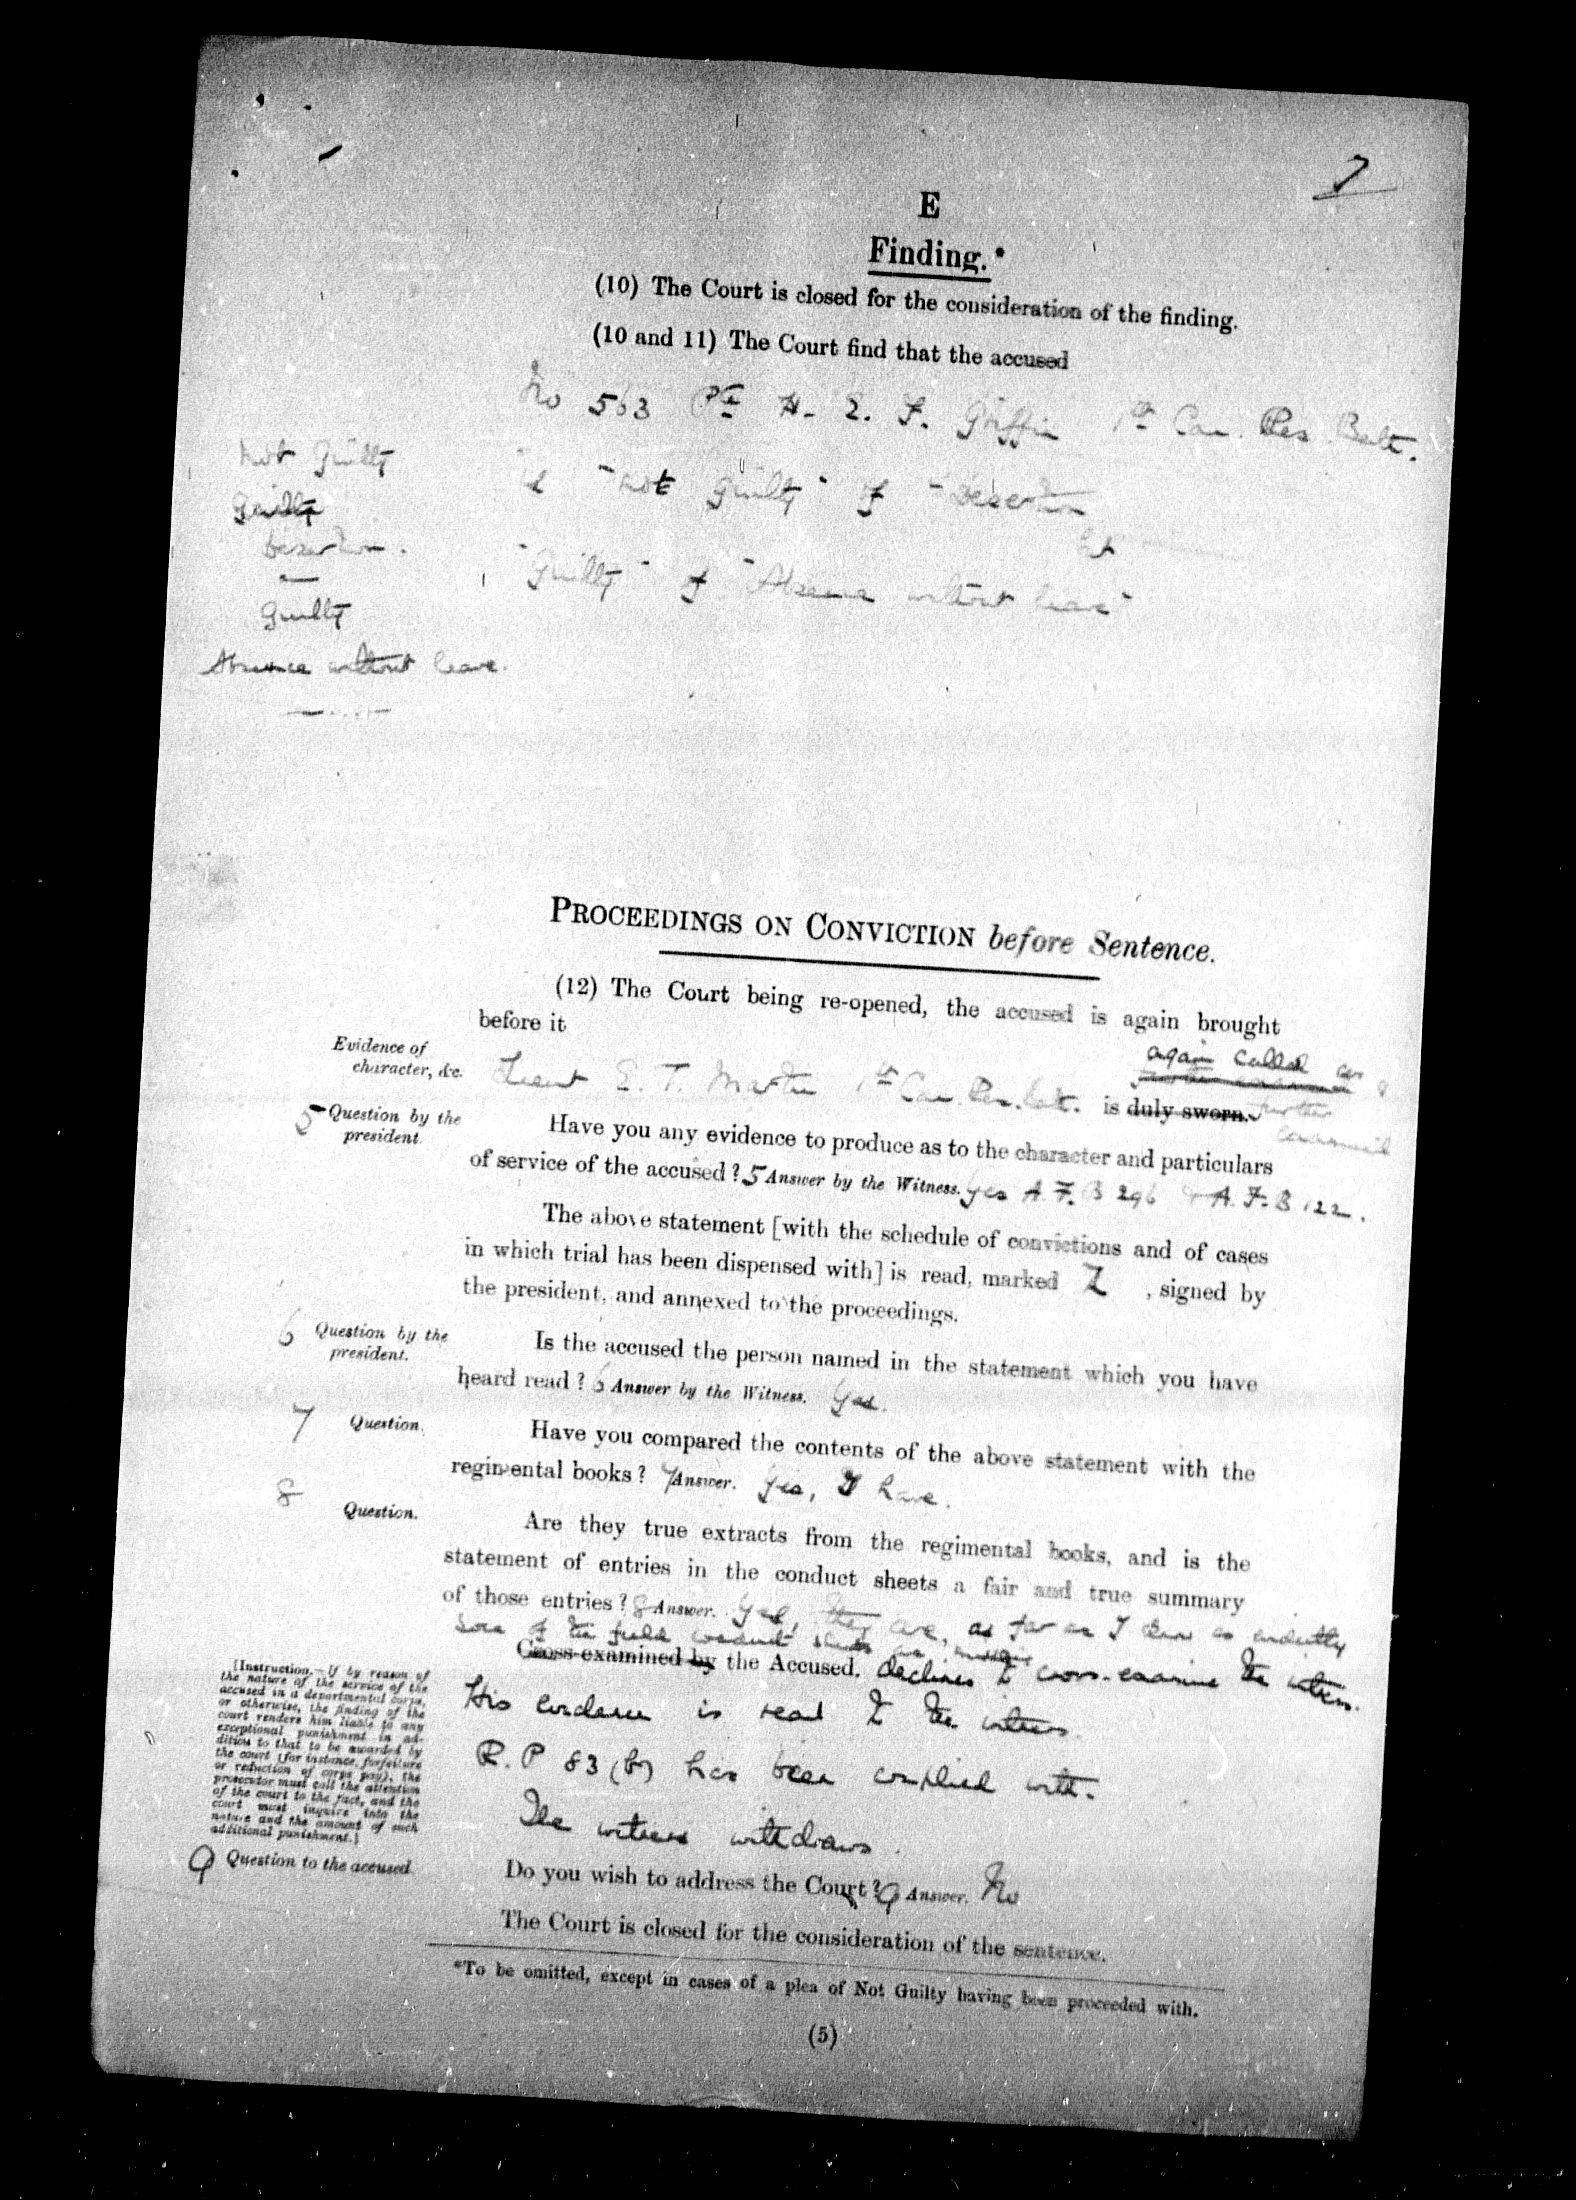 7
E
Finding.*
(10) The Court is closed for the consideration of the finding.
(10 and 11) The Court find that the accused
No 563 Pte H. E. F. Griffin 1st Can. Res. Batt.
Not Guilty
is "not guilty" of "desertion
Guilty
but
Desertion.
"Guilty" of "Absence without leave"
Guilty
Absence without leave.
PROCEEDINGS ON CONVICTION before Sentence.
(12) The Court being re-opened, the accused is again brought
before it
Evidence of
character, &c.
again called
Lieut E. T. Martin 1st Can. Res. Batt. is duly sworn. further
examined
5 Question by the
president.
Have you any evidence to produce as to the character and particulars
of service of the accused? 5 Answer by the Witness. Yes A. F. B 296 & A. F. B 122.
The above statement [with the schedule of convictions and of cases
in which trial has been dispensed with] is read, marked Z , signed by
the president, and annexed to the proceedings.
6 Question by the
president.
Is the accused the person named in the statement which you have
heard read? 6 Answer by the Witness. Yes.
7 Question.
Have you compared the contents of the above statement with the
regimental books? 7 Answer. Yes, I have.
8 Question.
Are they true extracts from the regimental books, and is the
statement of entries in the conduct sheets a fair and true summary
of those entries? 8 Answer. Yes, they are, as far as I know as evidently
some of the field conduct sheets are missing
Cross-examined by the Accused. declines to cross-examine the witness.
His evidence is read to the witness.
R.P 83 (B) has been complied with.
The witness withdraws.
[Instruction.—If by reason of
the nature of the service of the
accused in a departmental corps,
or otherwise, the finding of the
court renders him liable to any
exceptional punishment in ad-
dition to that to be awarded by
the court (for instance, forfeiture
or reduction of corps pay), the
prosecutor must call the attention
of the court to the fact, and the
court must inquire into the
nature and the amount of such
additional punishment.]
9 Question to the accused.
Do you wish to address the Court? 9 Answer. No
The Court is closed for the consideration of the sentence.
*To be omitted, except in cases of a plea of Not Guilty having been proceeded with.
(5)